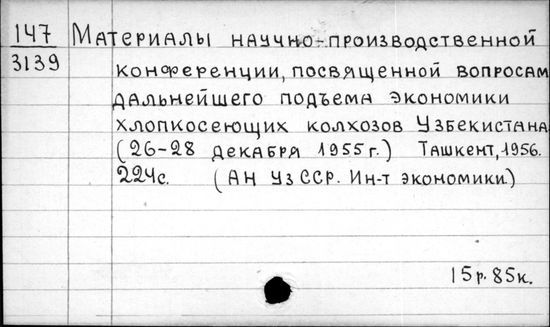 147 Материалы научно-производственной
3139 конференции, посвященной вопросам
дальнейшего подъема экономики
хлопкосеющих колхозов Узбекистана
(26-28 декабря 1955г.) Ташкент, 1956.
224с. (АН УзССР. Ин-т экономики.)
15р. 85к.